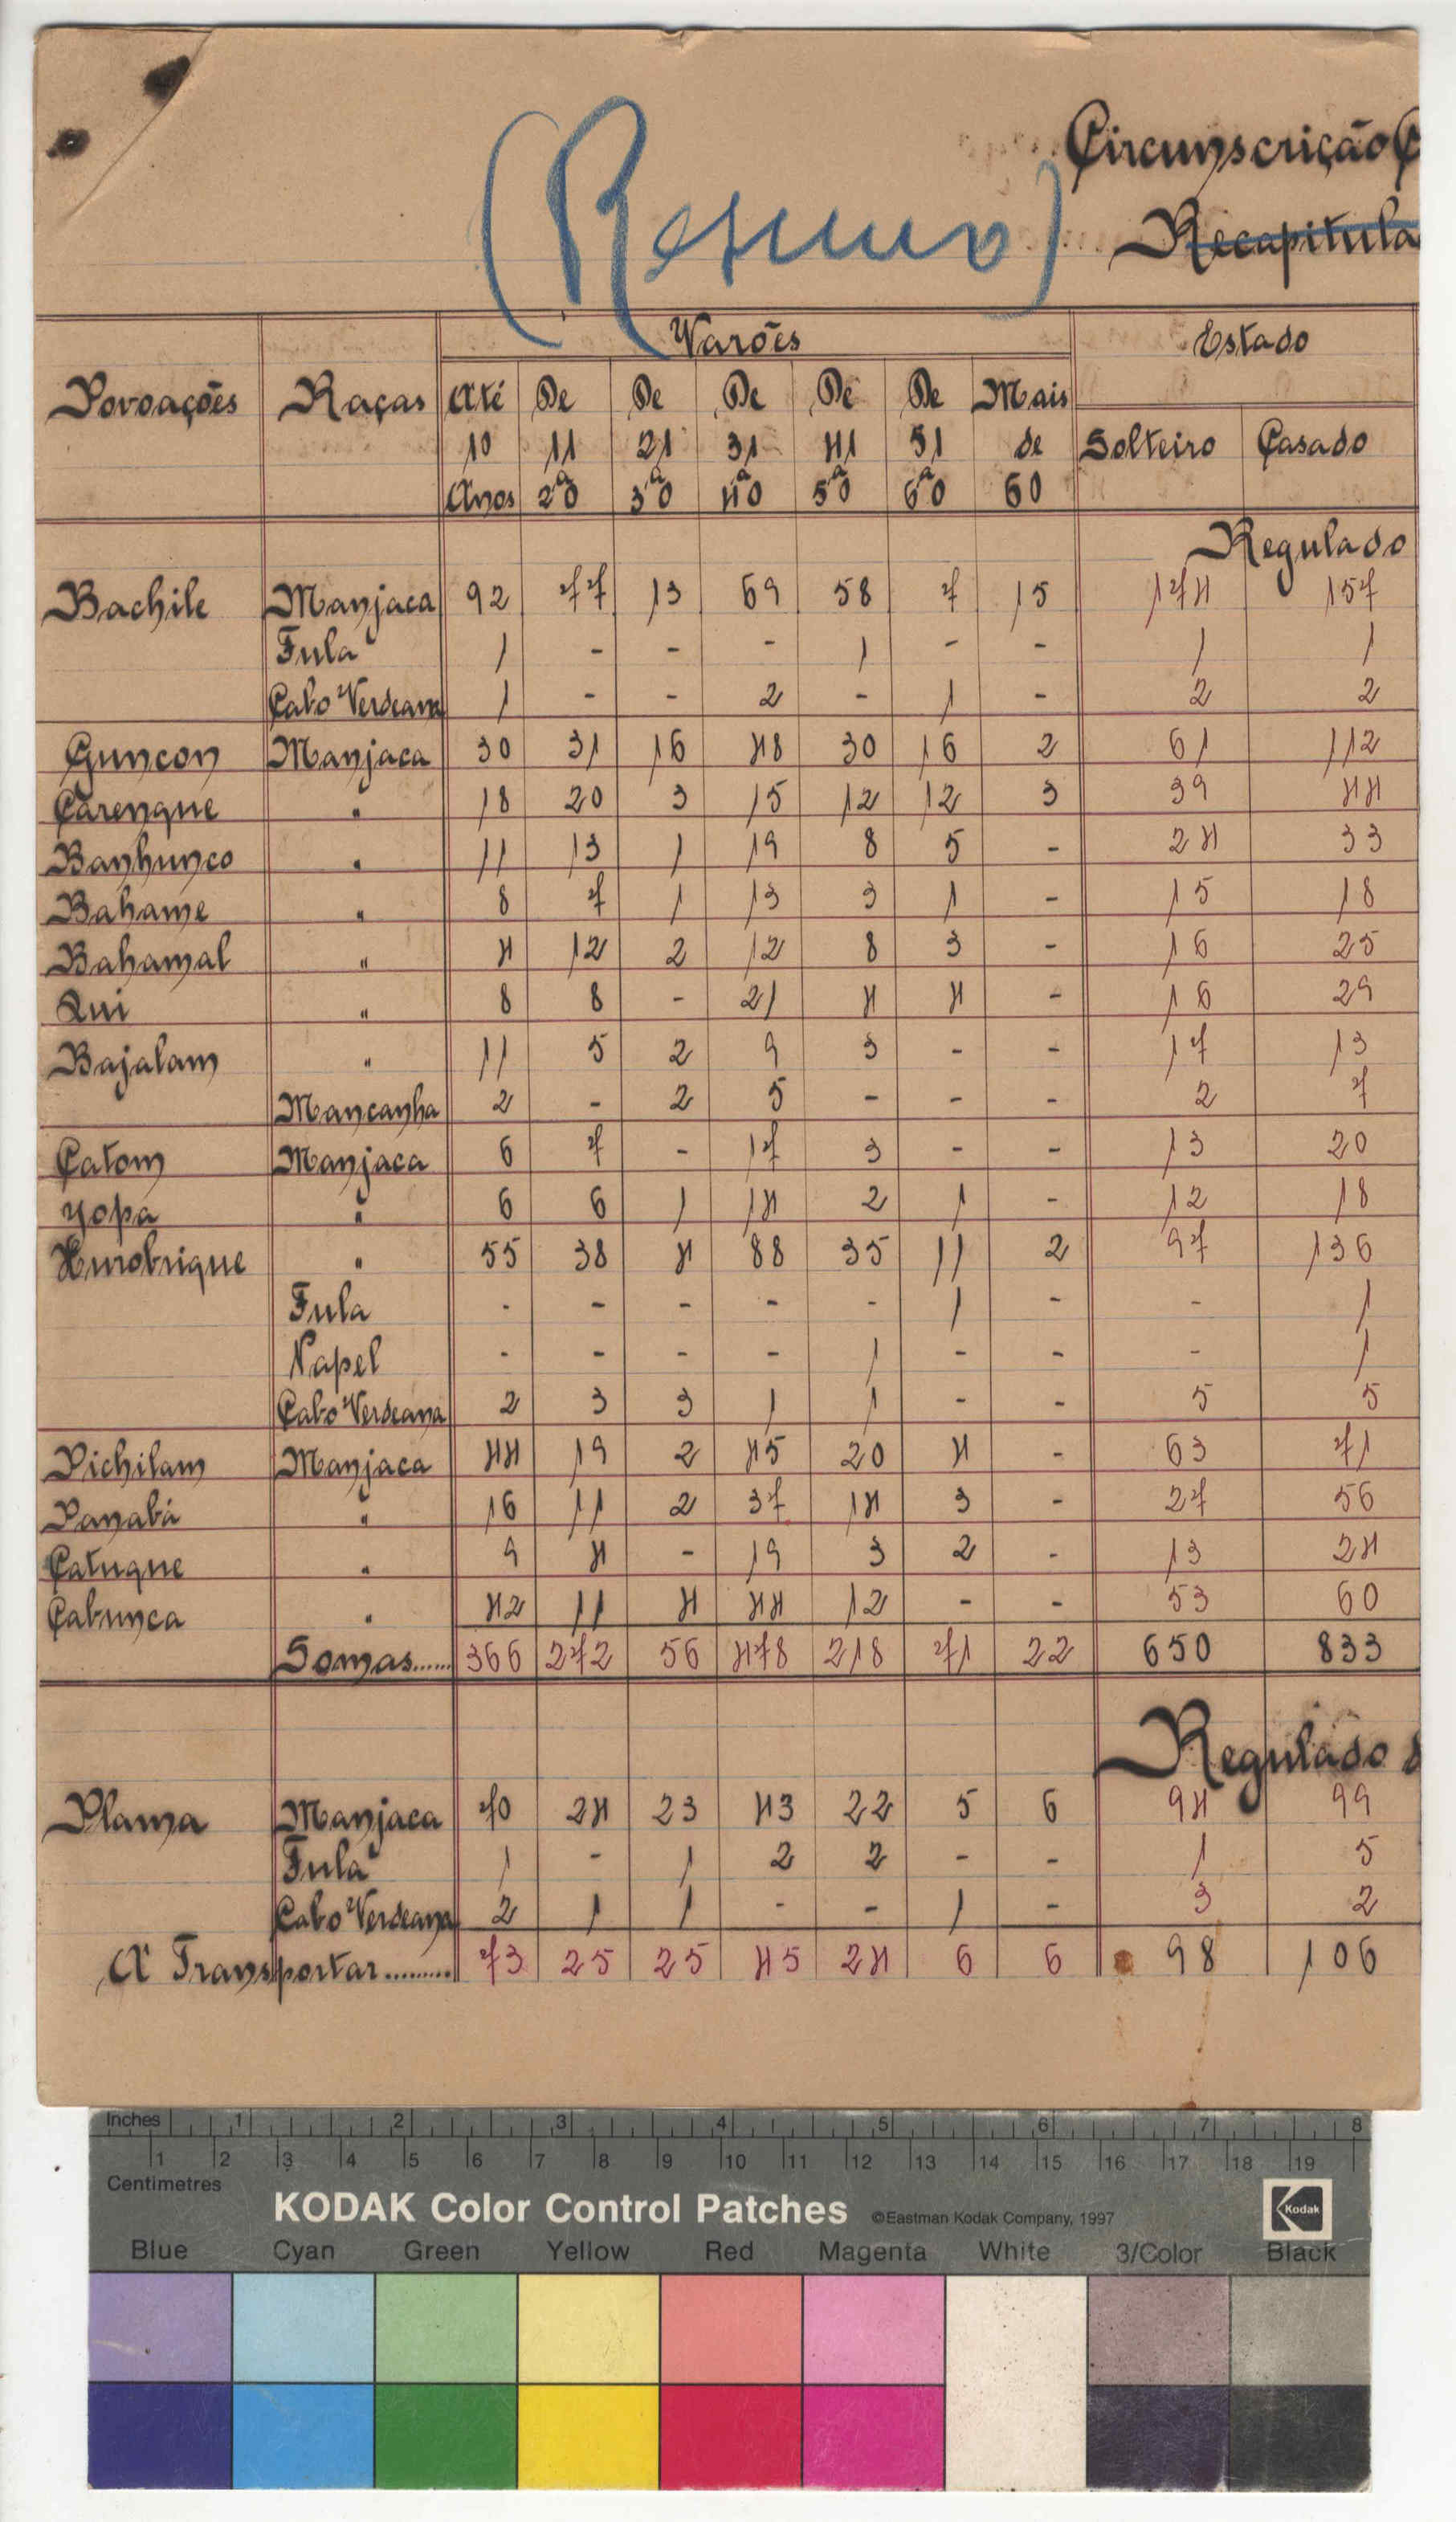 Circunscrição C
(Resumo)
Recapitula
Varões Estado
Povoações Raças Até De De De De De Mais
10 11 21 31 41 51 de Solteiro Casado
Anos a 20 a 30 a 40 a 50 a 60 60
Regulado
Bachile Manjaca 92 77 13 69 58 7 15 174 157
Fula 1 - - - 1 - - 1 1
Cabo Verdeana 1 - - 2 - 1 - 2 2
Guncon Manjaca 30 31 16 48 30 16 2 61 112
Carenque " 18 20 3 15 12 12 3 39 44
Banhunco " 11 13 1 19 8 5 - 24 33
Bahame " 8 7 1 13 3 1 - 15 18
Bahamal " 4 12 2 12 8 3 - 16 25
Qui " 8 8 - 21 4 4 - 16 29
Bajalam " 11 5 2 9 3 - - 17 13
Mancanha 2 - 2 5 - - - 2 7
Catom Manjaca 6 7 - 17 3 - - 13 20
Yopa " 6 6 1 14 2 1 - 12 18
" 55 38 4 88 35 11 2 97 136
Fula - - - - - 1 - - 1
Papel - - - - 1 - - - 1
Cabo Verdeana 2 3 3 1 1 - - 5 5
Pichilam Manjaca 44 19 2 45 20 4 - 63 71
Panabá " 16 11 2 37 14 3 - 27 56
Catuque " 9 4 - 19 3 2 - 13 24
Cabunca " 42 11 4 44 12 - - 53 60
Somas...... 366 272 56 478 218 71 22 650 833
Regulado d
Plama Manjaca 70 24 23 43 22 5 6 94 99
Fula 1 - 1 2 2 - - 1 5
Cabo Verdeana 2 1 1 - - 1 - 3 2
A Transportar......... 73 25 25 45 24 6 6 98 106
Inches 1 2 3 4 5 6 7 8
1 2 3 4 5 6 7 8 9 10 11 12 13 14 15 16 17 18 19
Centimetres
KODAK Color Control Patches ©Eastman Kodak Company, 1997 Kodak
Blue Cyan Green Yellow Red Magenta White 3/Color Black